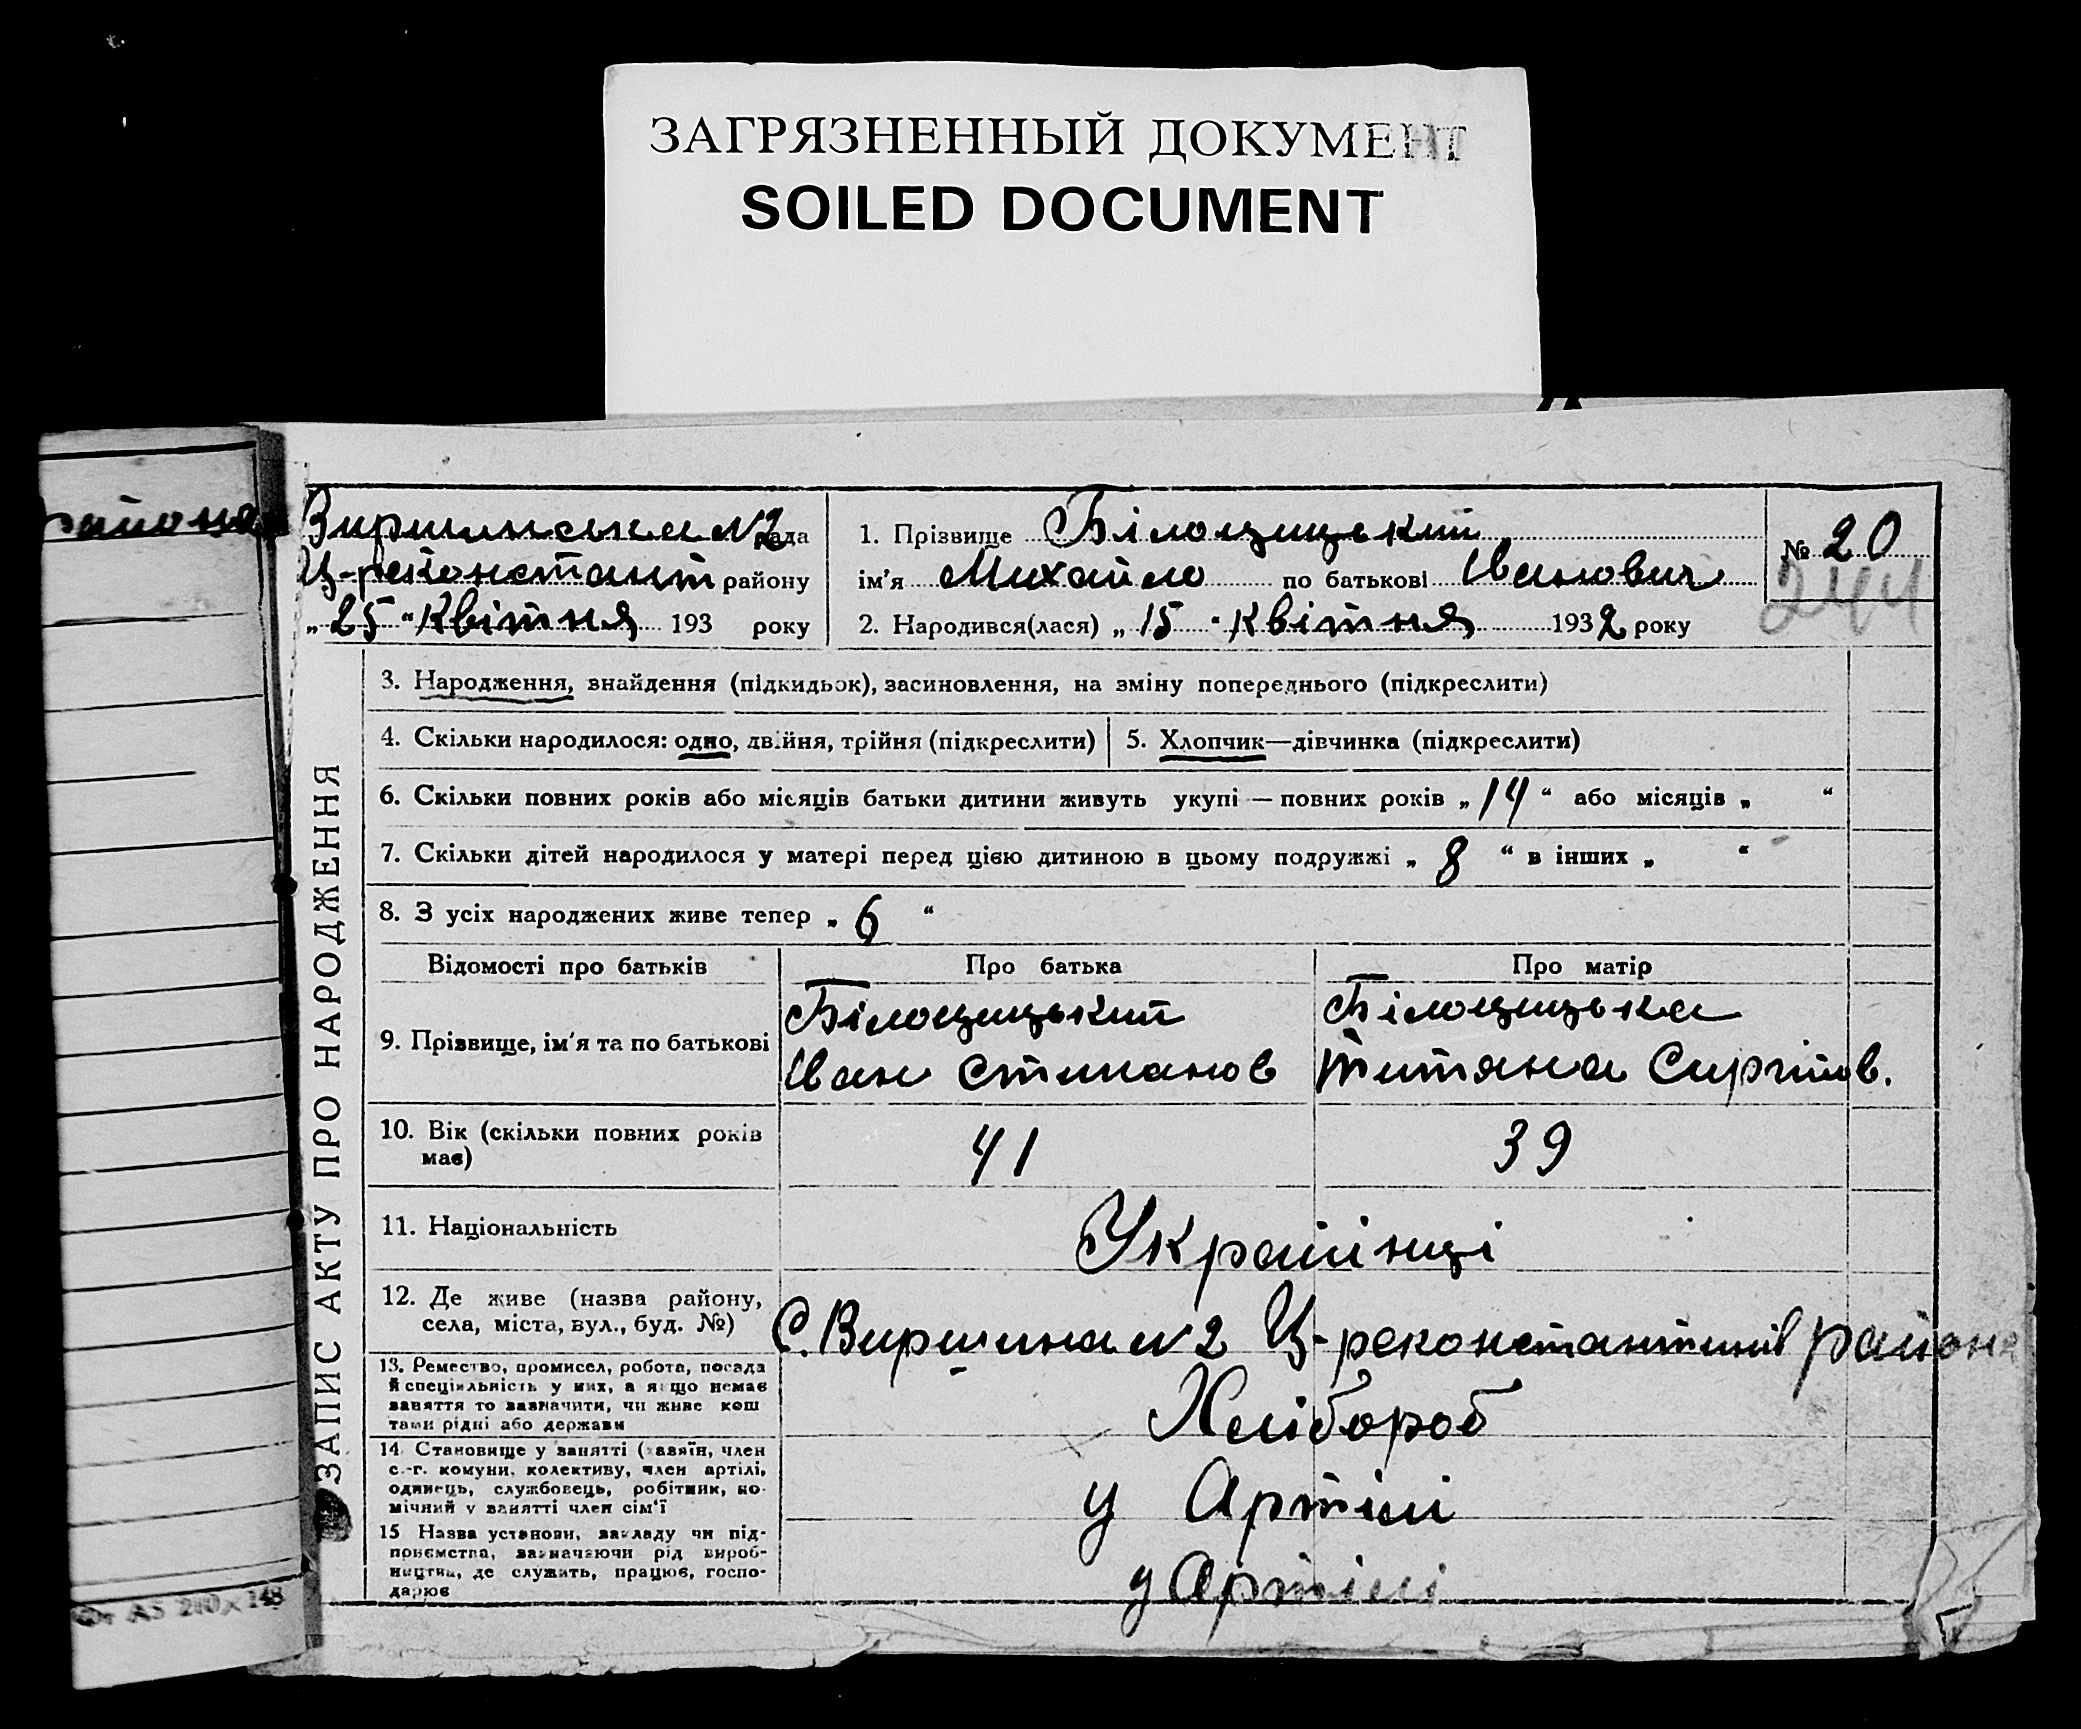 ЗАГРЯЗНЕННЫЙ ДОКУМЕНТ
SOILED DOCUMENT
района
Виршинська №2 рада
Ц-реконстант району
„ 25 “ Квітня 193 року
1. Прізвище Білоцицький
ім'я Михайло по батькові Иванович
2. Народився(лася) „ 15 “ Квітня 1932 року
№ 20
244
ЗАПИС АКТУ ПРО НАРОДЖЕННЯ
3. Народження, знайдення (підкидьок), засиновлення, на зміну попереднього (підкреслити)
4. Скільки народилося: одно, двійня, трійня (підкреслити)
5. Хлопчик—дівчинка (підкреслити)
6. Скільки повних років або місяців батьки дитини живуть укупі — повних років „ 14 “ або місяців „ “
7. Скільки дітей народилося у матері перед цією дитиною в цьому подружжі „ 8 “ в інших „ “
8. З усіх народжених живе тепер „ 6 “
Відомості про батьків
Про батька
Про матір
9. Прізвище, ім'я та по батькові
Білоцицький
Иван Степанов
Білоцицька
Титяна Сиргіїов.
10. Вік (скільки повних років
має)
41
39
11. Національність
Українці
12. Де живе (назва району,
села, міста, вул., буд. №)
С. Виршина №2 Ц-реконстантинів района
13. Ремество, промисел, робота, посада
й спеціяльність у них, а якщо немає
заняття то зазначити, чи живе кош
тами рідні або держави
Хлібороб
14. Становище у занятті (хазяїн, член
с.-г. комуни, колективу, член артілі,
одинець, службовець, робітник, по-
мічний у занятті член сім'ї
у Артілі
15 Назва установи, закладу чи під-
приємства, зазначаючи рід вироб-
ництва, де служить, працює, госпо-
дарює
у Артілі
А5 210x148